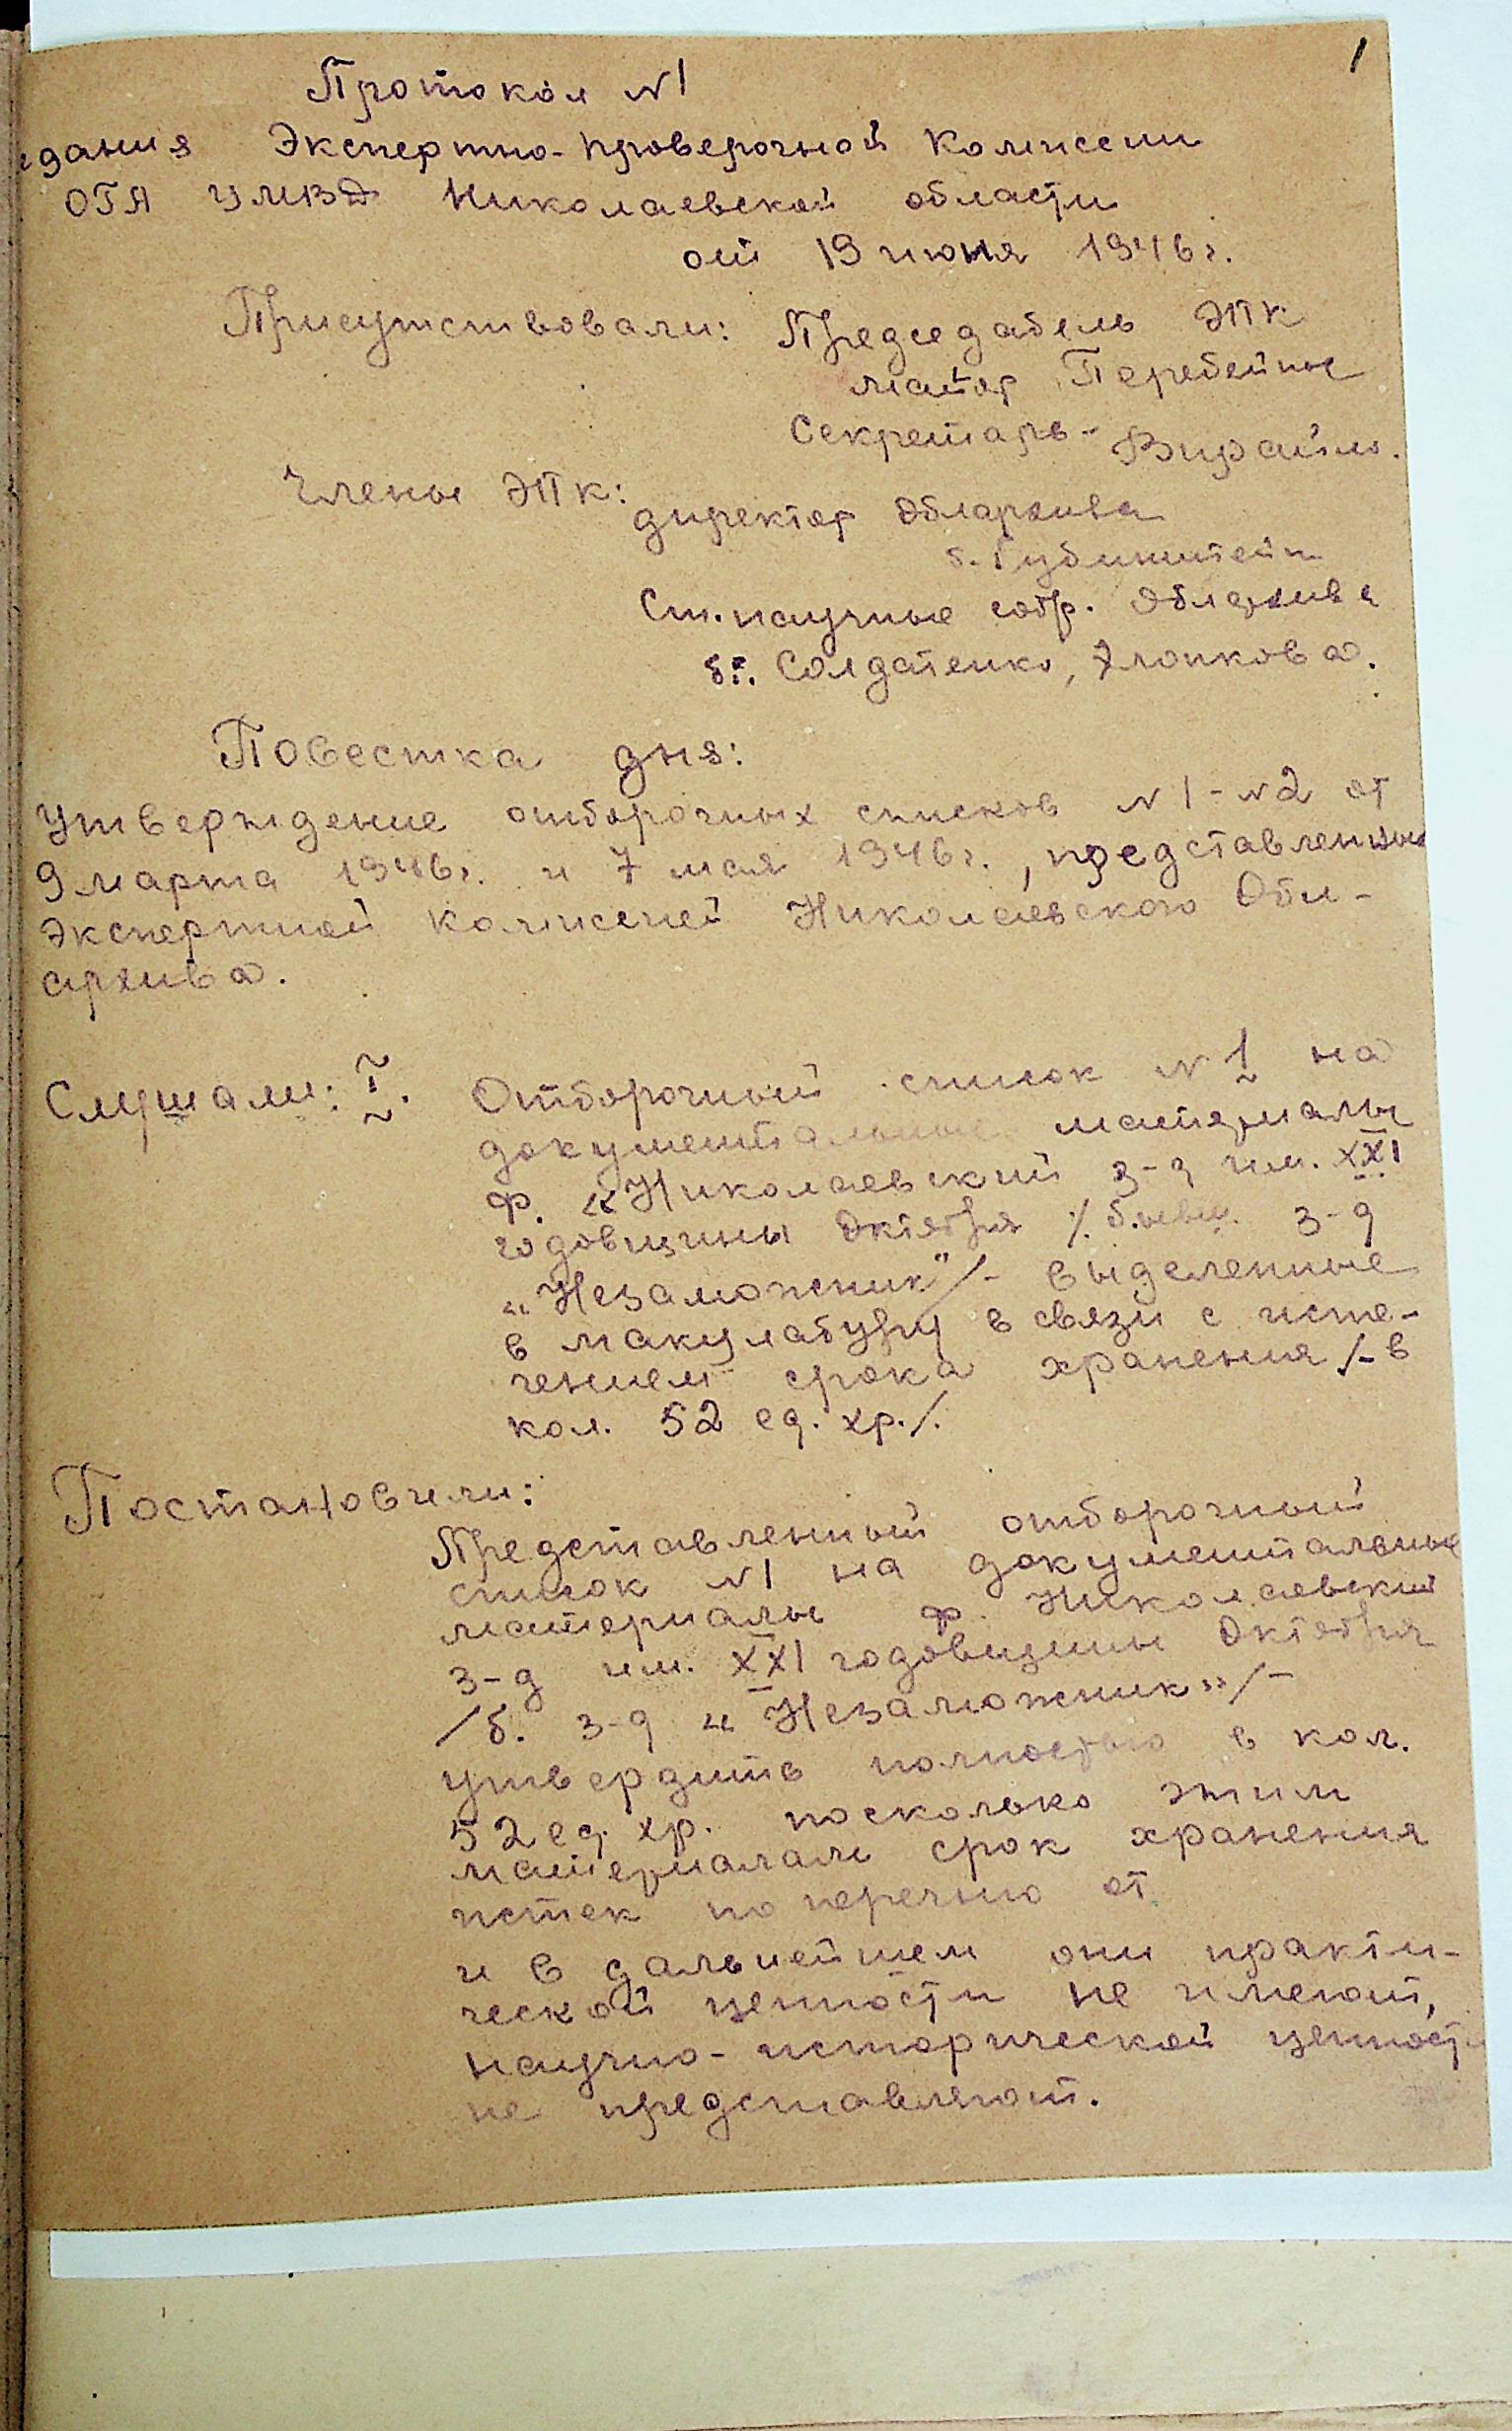 1
Протокол №1
едания Экспертно-проверочной Комиссии
ОГА УМВД Николаевской области
от 19 июня 1946 г.
Присутствовали: Председатель ЭПК
майор Перебейнос
Секретарь -
Члены ЭПК:
директор Облархива
т. Губинштейн
Ст. научные сотр. Облархива
т.т. Солдатенко, Хлопкова.
Повестка дня:
Утверждение отборочных списков №1-№2 от
9 марта 1946 г. и 7 мая 1946 г., представленные
Экспертной Комиссией Николаевского Обл-
архива.
Слушали: I. Отборочный список №1 на
документальные материалы
ф. «Николаевский з-д им. XXI
годовщины Октября /бывш. з-д
„Незаможник"/- выделенные
в макулатуру в связи с исте-
чением срока хранения /-в
кол. 52 ед. хр./.
Постановили:
Представленный отборочный
список №1 на документальные
материалы ф. Николаевский
з-д им. XXI годовщины Октября
/б. з-д «Незаможник»/-
утвердить полностью в кол.
52 ед. хр. поскольку этим
материалам срок хранения
истек по перечню от
и в дальнейшем они практи-
ческой ценности не имеют,
научно-исторической ценности
не представляют.